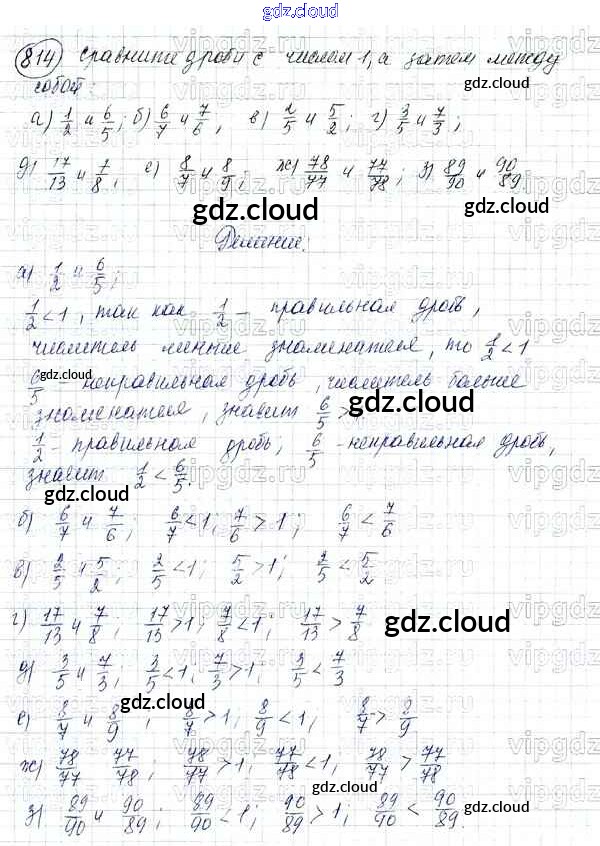 gdz.cloud
814) Сравните дроби с числом 1, а затем между
собой:
а) 1/2 и 6/5; б) 6/7 и 7/6, в) 2/5 и 5/2; г) 3/5 и 7/3;
д) 17/13 и 7/8, е) 8/7 и 8/9; ж) 78/77 и 77/78; з) 89/90 и 90/89
gdz.cloud gdz.cloud
Решение:
а) 1/2 и 6/5;
1/2 < 1, так как 1/2 - правильная дробь,
числитель меньше знаменателя, то 1/2 < 1
gdz.cloud
6/5 - неправильная дробь, числитель больше
знаменателя, значит 6/5 >
gdz.cloud
1/2 - правильная дробь, 6/5 - неправильная дробь,
значит 1/2 < 6/5.
gdz.cloud
б) 6/7 и 7/6; 6/7 < 1; 7/6 > 1; 6/7 < 7/6
в) 2/5 и 5/2; 2/5 < 1; 5/2 > 1; 2/5 < 5/2
г) 17/13 и 7/8; 17/13 > 1; 7/8 < 1; 17/13 > 7/8
gdz.cloud
д) 3/5 и 7/3; 3/5 < 1; 7/3 > 1; 3/5 < 7/3
gdz.cloud
е) 8/7 и 8/9; 8/7 > 1; 8/9 < 1; 8/7 > 8/9
ж) 78/77 77/78; 78/77 > 1; 77/78 < 1; 78/77 > 77/78
gdz.cloud gdz.cloud
з) 89/90 и 90/89; 89/90 < 1; 90/89 > 1; 89/90 < 90/89.
gdz.cloud
vipgdz.ru